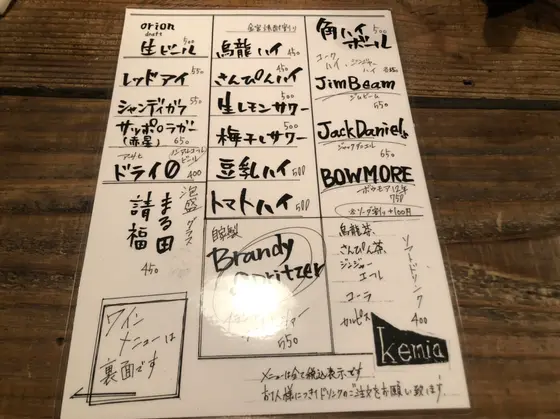 orion
draft
生ビール 500
レッドアイ 550
シャンディガフ 550
サッポロラガー
(赤星) 650
アサヒ ノンアルコールビール
ドライ0 400
泡盛 グラス
まる田
請福
450
ワイン
メニューは
裏面です
烏龍ハイ 450
さんぴんハイ 450
生レモンサワー 500
梅干しサワー 500
豆乳ハイ 500
トマトハイ 500
自家製
Brandy
Spritzer
550
角ハイ
ボール 500
コーク
ハイ・ジンジャー
ハイ
JimBeam
ジムビーム
650
JackDaniel's
ジャックダニエル
650
BOWMORE
ボウモア12年
750
※ソーダ割り+100円
ソフトドリンク
400
烏龍茶
さんぴん茶
ジンジャー
エール
コーラ
カルピス
kemia
メニューは全て税込表示です
お1人様につき1ドリンクのご注文をお願い致します。